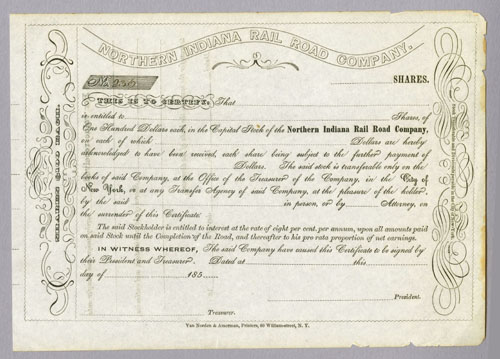 NORTHERN INDIANA RAIL ROAD COMPANY.
No.
SHARES.
THIS IS TO CERTIFY, That
is entitled to Shares, of
One Hundred Dollars each, in the Capital Stock of the Northern Indiana Rail Road Company,
on each of which Dollars are hereby
acknowledged to have been received, each share being subject to the further payment of
Dollars. The said stock is transferable only on the
books of said Company, at the Office of the Treasurer of the Company, in the City of
New York, or at any Transfer Agency of said Company, at the pleasure of the holder,
by the said in person, or by Attorney, on
the surrender of this Certificate.
The said Stockholder is entitled to interest at the rate of eight per cent. per annum, upon all amounts paid
on said Stock until the Completion of the Road, and thereafter to his pro rata proportion of net earnings.
IN WITNESS WHEREOF, The said Company have caused this Certificate to be signed by
their President and Treasurer. Dated at this
day of 185
President.
Treasurer.
Van Norden & Amerman, Printers, 60 William-street, N. Y.